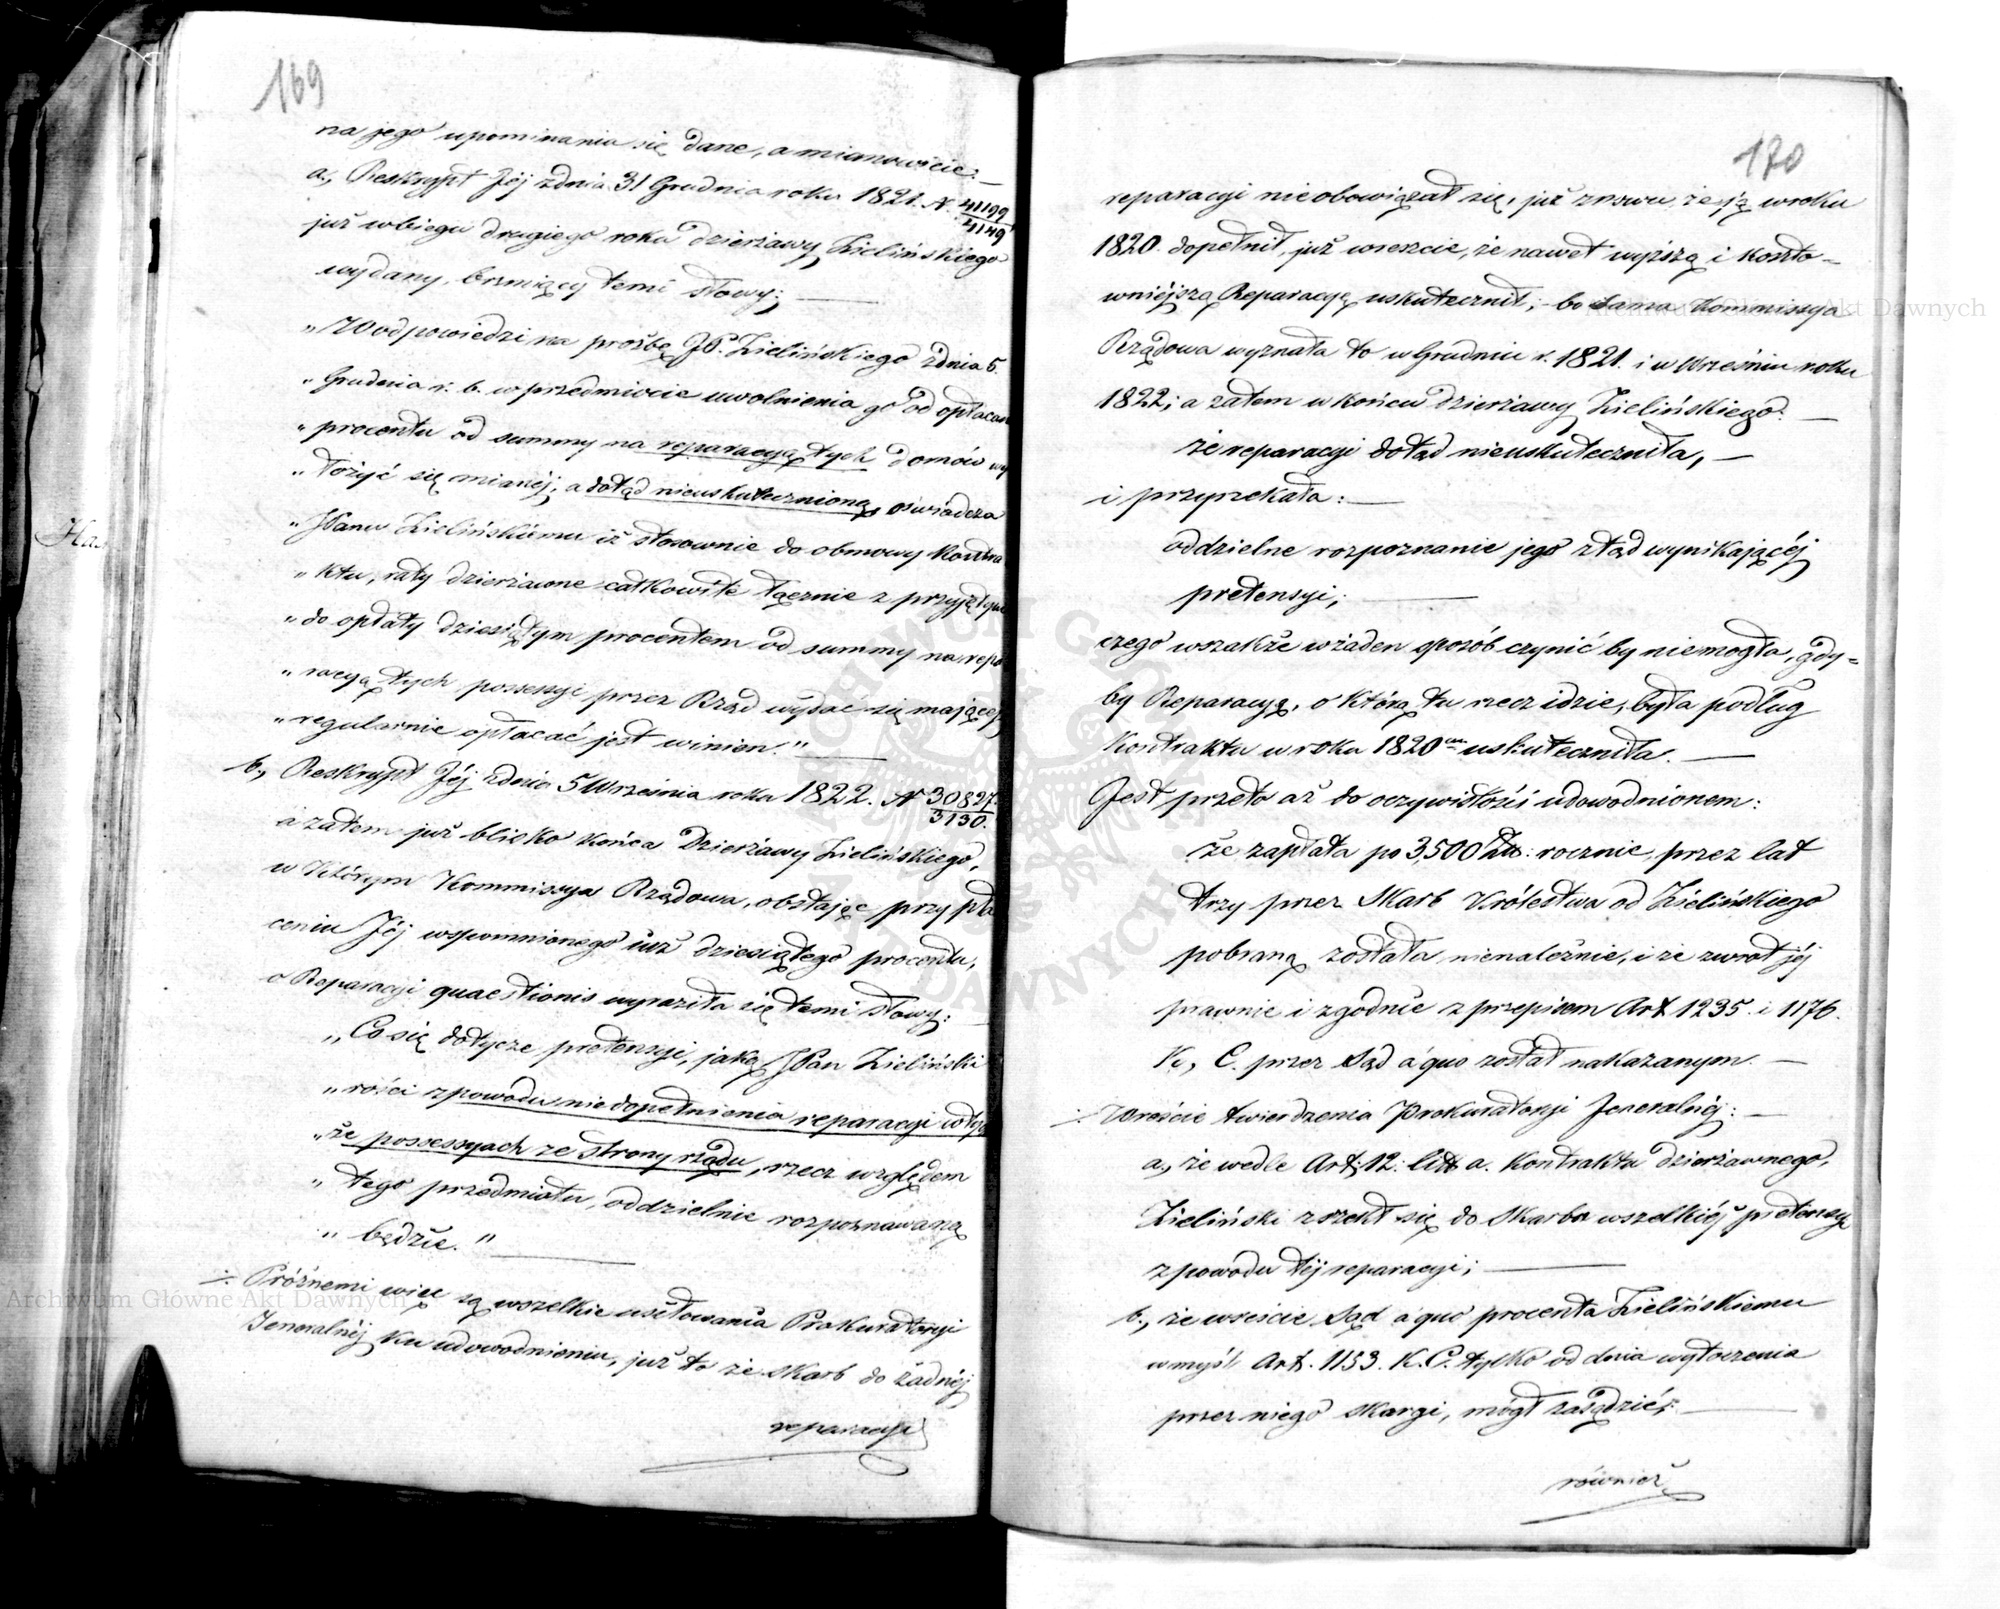 169
na jego upominania się dane, a mianowicie:—
a., Reskrypt Jéj z dnia 31 Grudnia roku 1821. N. 41199/4149
już w biegu drugiego roku dzierżawy Zielińskiego
wydany, brzmiący temi słowy; —
„W odpowiedzi na prośbę JP. Zielińskiego z dnia 5.
„Grudnia r. b. w przedmiocie uwolnienia go od opłacan
„procentu od summy na reparacyą tych domów wy
„łożyć się mianéj, a dotąd nieuskutecznioną, oświadcza
„JPanu Zielińskiému iż stosownie do obmowy Kontra
„ktu, raty dzierżawne całkowite łącznie z przyjętym
„do opłaty dziesiątym procentem od summy na repa
„racyą tych possessyi przez Rząd wydać się mającéj
„regularnie opłacać jest winien." —
b., Reskrypt Jéj z dnia 5 Września roku 1822. N 30827/3130.
a zatem już blisko końca Dzierżawy Zielińskiego,
w którym Kommissya Rządowa, obstając przy pła
ceniu Jéj wspomnionego już dziesiątego procentu,
o Reparacyi quaestionis wyraziła się temi słowy:
„Co się dotycze pretensyi, jaką JPan Zieliński
„rości z powodu niedopełnienia reparacyi w tych
„że possessyach ze strony rządu, rzecz względem
„tego przedmiotu, oddzielnie rozpoznawaną
„będzie." —
÷ Próżnemi więc są wszelkie usiłowania Prokuratoryi
Jeneralnéj ku udowodnieniu, już to że Skarb do żadnéj
reparacyi
170
reparacyi nieobowiązał się, już znowu że ją w roku
1820. dopełnił, już wreszcie, że nawet wyższą i koszto-
wniéjszą Reparacyę uskutecznił; bo sama Kommissya
Rządowa wyznała to w Grudniu r. 1821. i w Wrześniu roku
1822; a zatem w końcu dzierżawy Zielińskiego: —
że reparacyi dotąd nieuskuteczniła, —
i przyrzekała: —
oddzielne rozpoznanie jego ztąd wynikającéj
pretensyi; —
czego wszakże w żaden sposób czynić by niemogła, gdy-
by Reparacyą, o którą tu rzecz idzie, była podług
Kontraktu w roku 1820ym uskuteczniła. —
Jest przeto aż do oczywistości udowodnionem:
że zapłata po 3,500 Złt: rocznie, przez lat
trzy przez Skarb Królestwa od Zielińskiego
pobraną została nienależnie, i że zwrot jéj
prawnie i zgodnie z przepisem Art 1235. i 1176.
K. C. przez Sąd à quo został nakazanym. —
÷ Wreście twierdzenia Prokuratoryi Jeneralnéj: —
a., że wedle Art: 12. litt a. Kontraktu dzierżawnego,
Zieliński zrzekł się do Skarbu wszelkiéj pretensyi
z powodu téj reparacyi; —
b., że wreście Sąd à quo procenta Zielińskiemu
w myśl Art. 1153. K. C. tylko od dnia wytoczenia
przez niego skargi, mógł zasądzić; —
również
Archiwum Główne Akt Dawnych
Akt Dawnych
ARCHIWUM GŁÓWNE AKT DAWNYCH